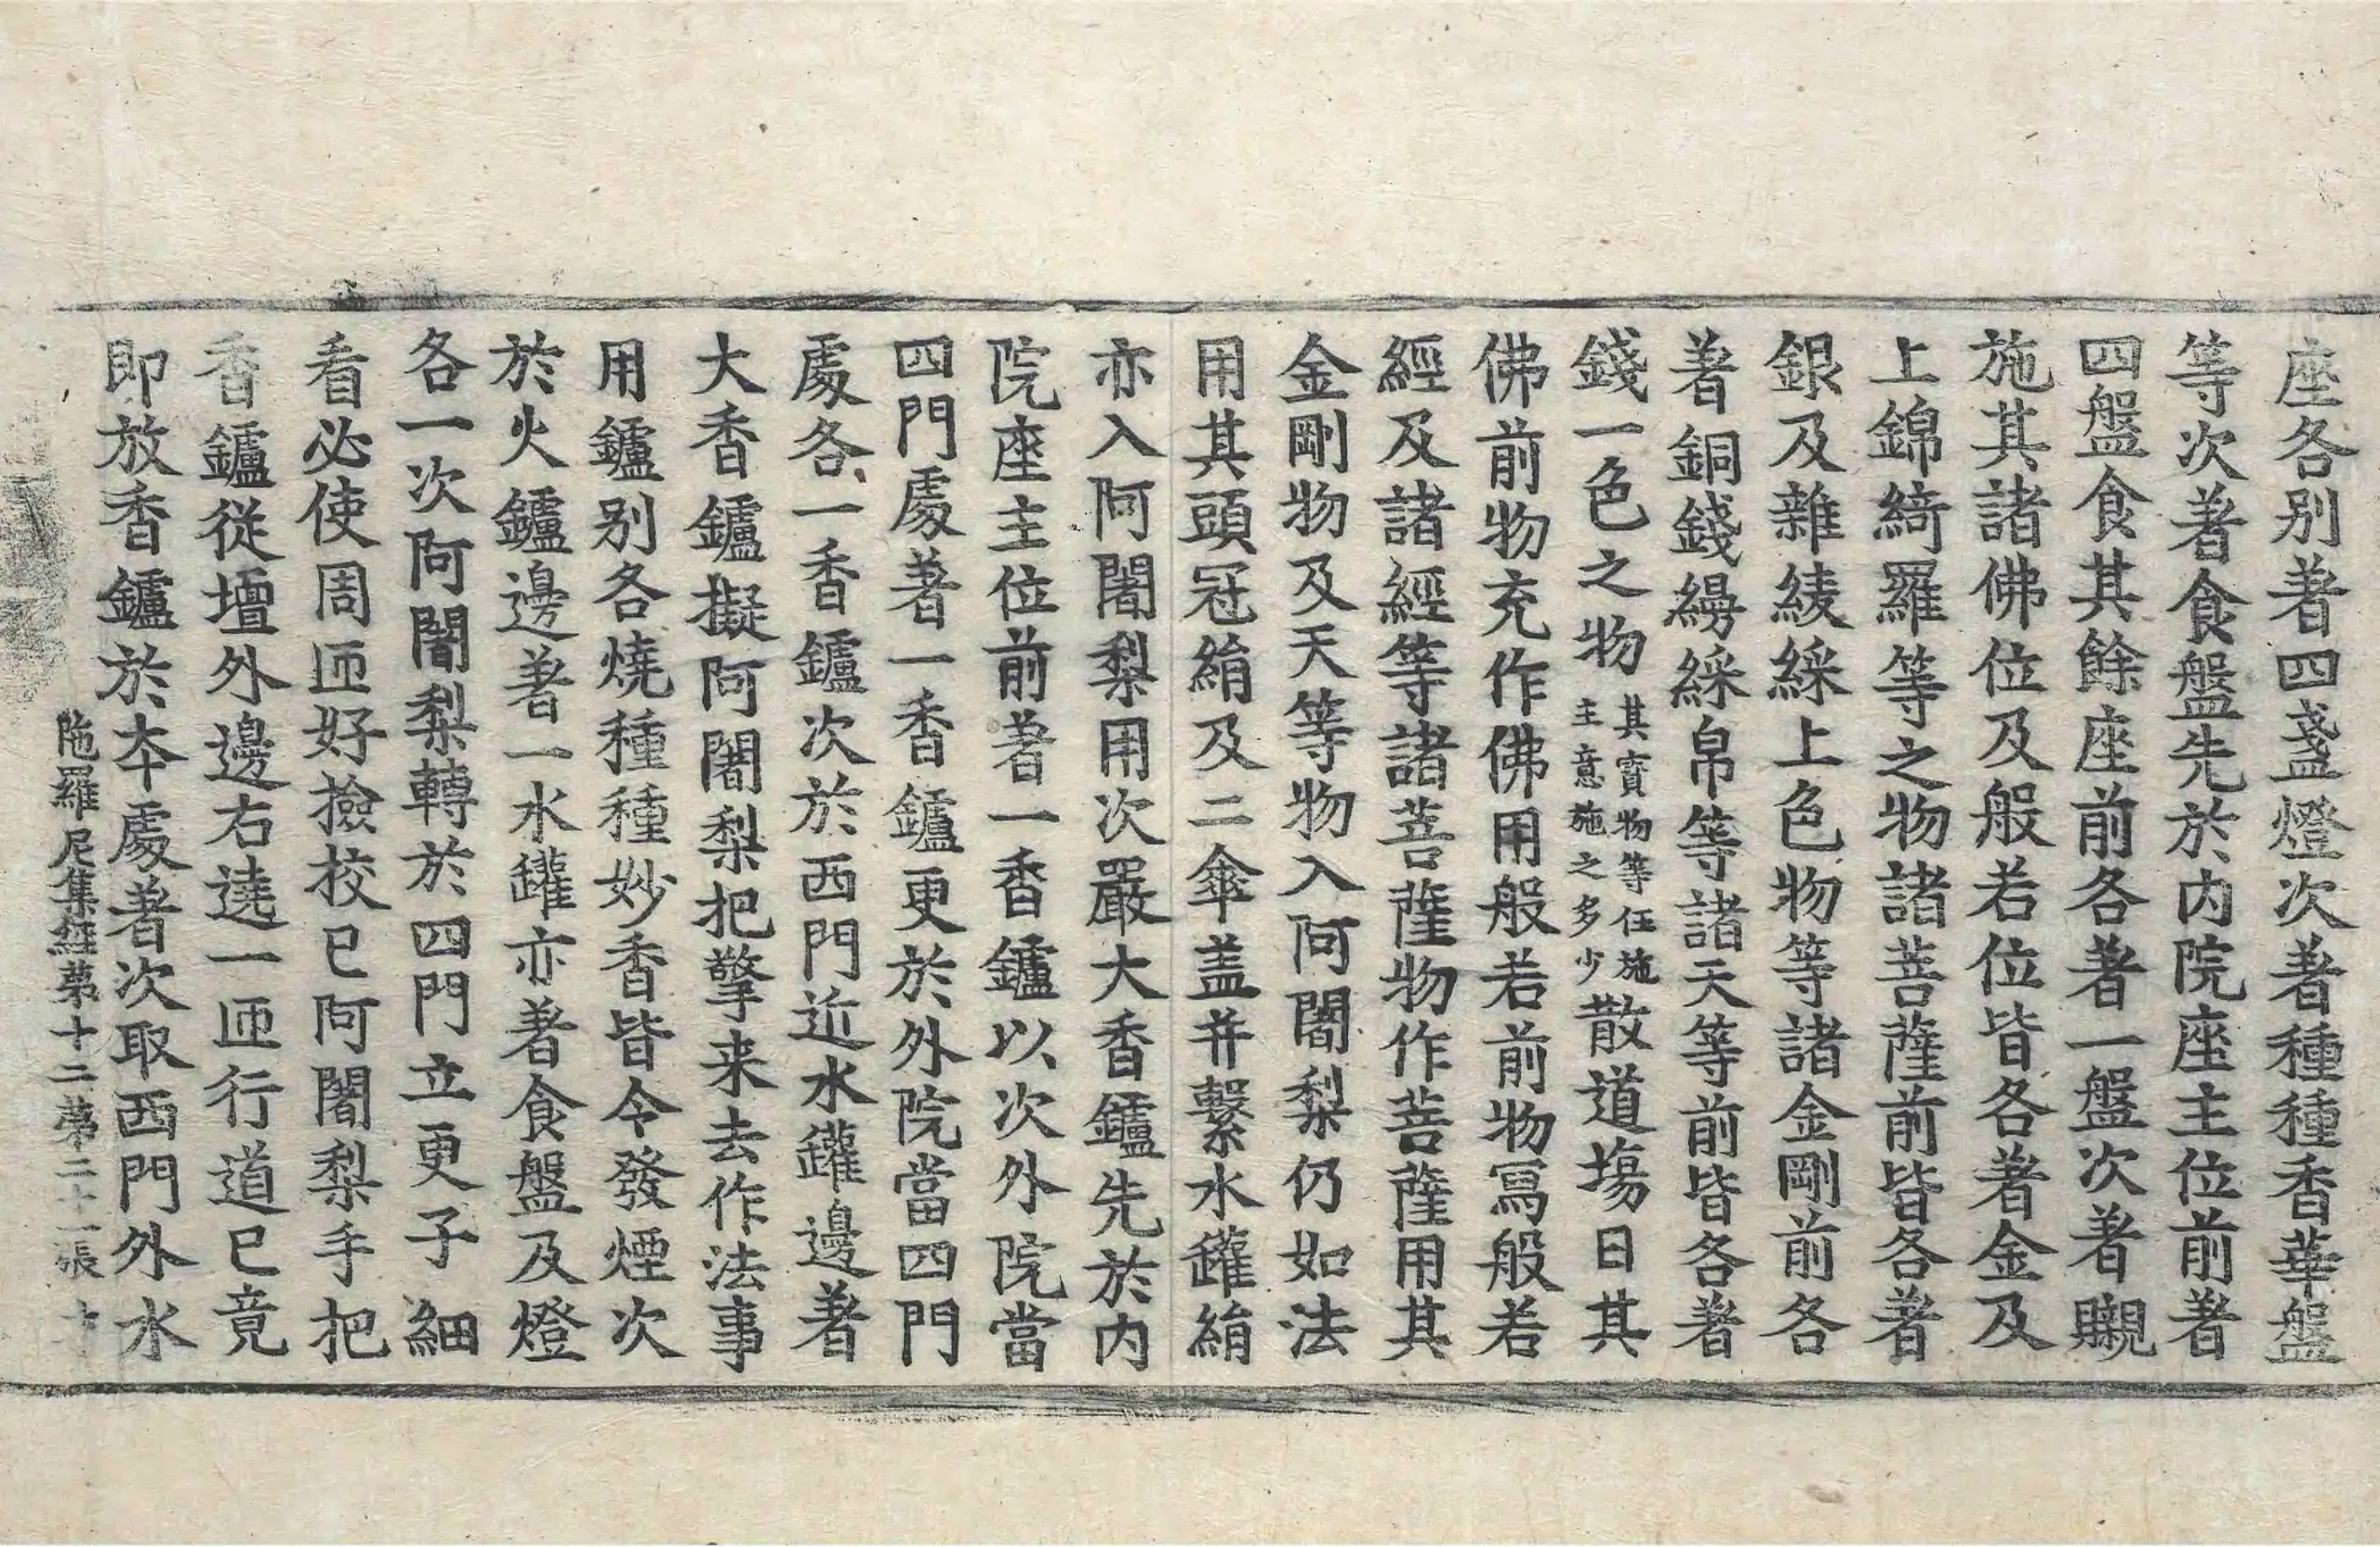 座各別著四盞燈次著種種香華盤
等次著食盤先於内院座主位前著
四盤食其餘座前各著一盤次著䞋
施其諸佛位及般若位皆各著金及
上錦綺羅等之物諸菩薩前皆各著
銀及雜綾綵上色物等諸金剛前各
著銅錢縵綵帛等諸天等前皆各著
錢一色之物其寶物等任施主意施之多少散道塲日其
佛前物充作佛用般若前物寫般若
經及諸經等諸菩薩物作菩薩用其
金剛物及天等物入阿闍梨仍如法
用其頭冠絹及二傘盖并繫水罐絹
亦入阿闍梨用次嚴大香鑪先於内
院座主位前著一香鑪以次外院當
四門處著一香鑪更於外院當四門
處各一香鑪次於西門近水罐邊著
大香鑪擬阿闍梨把擎来去作法事
用鑪别各燒種種妙香皆令發煙次
於火鑪邊著一水罐亦著食盤及燈
各一次阿闍梨轉於四門立更子細
看必使周匝好撿挍已阿闍梨手把
香鑪從壇外邊右遶一匝行道已竟
即放香鑪於夲處著次取西門外水
陁羅尼集經第十二第二十一張